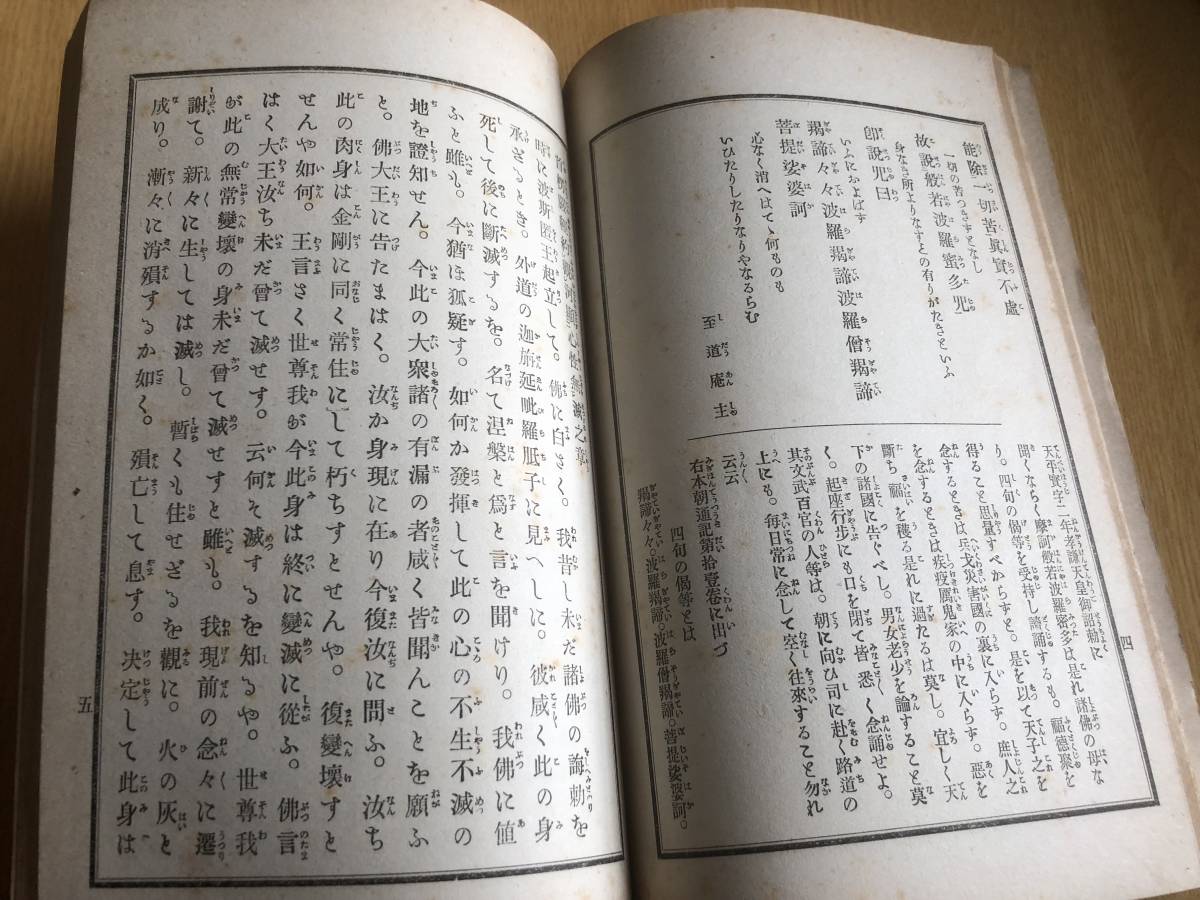 能除一切苦眞實不虛
一切の苦つきさすとなし
故說般若波羅蜜多咒
身なき所よりなすとの有りがたきといふ
卽說咒曰
いふにおよばす
羯諦々々波羅羯諦波羅僧羯諦
菩提娑婆訶
心なく消へはてゝ何ものも
いひたりしたりなりやなるらむ
至道庵主
天平寳字二年孝謙天皇御詔勅に
聞くならく摩訶般若波羅蜜多は是れ諸佛の母な
り。四句の偈等を受持し讀誦するも。福德聚を
得ること思量すべからすと。是を以て天子之を
念するときは兵戈災害國の裏に入らす。庶人之
を念するときは疾疫厲鬼家の中に入らす。惡を
斷ち福を穫る是れに過たるは莫し。宜しく天
下の諸國に告ぐべし。男女老少を論すること莫
く。起座行步にも口を閉て皆悉く念誦せよ。
其文武百官の人等は。朝に向ひ司に赴く路道の
上にも。每日常に念して空く往來すること勿れ
云云
右本朝通記第拾壹卷に出づ
四句の偈等とは
羯諦々々。波羅羯諦。波羅僧羯諦。菩提娑婆訶。
四
心性無滅之章。
時に波斯匿王起立して。佛に白さく。我昔し未た諸佛の誨勅を
承ざるとき。外道の迦旃延毗羅胝子に見へしに。彼咸く此の身
死して後に斷滅するを。名て涅槃と爲と言を聞けり。我佛に値
ふと雖も。今猶ほ狐疑す。如何か發揮して此の心の不生不滅の
地を證知せん。今此の大衆諸の有漏の者咸く皆聞んことを願ふ
と。佛大王に告たまはく。汝か身現に在り今復汝に問ふ。汝ち
此の肉身は金剛に同く常住にして朽ちすとせんや。復變壞すと
せんや如何。王言さく世尊我が今此身は終に變滅に從ふ。佛言
はく大王汝ち未だ曾て滅せす。云何そ滅するを知るや。世尊我
が此の無常變壞の身未だ曾て滅せすと雖も。我現前の念々に遷
謝て。新々に生しては滅し。暫くも住せざるを觀に。火の灰と
成り。漸々に消殞するか如く。殞亡して息す。決定して此身は
五